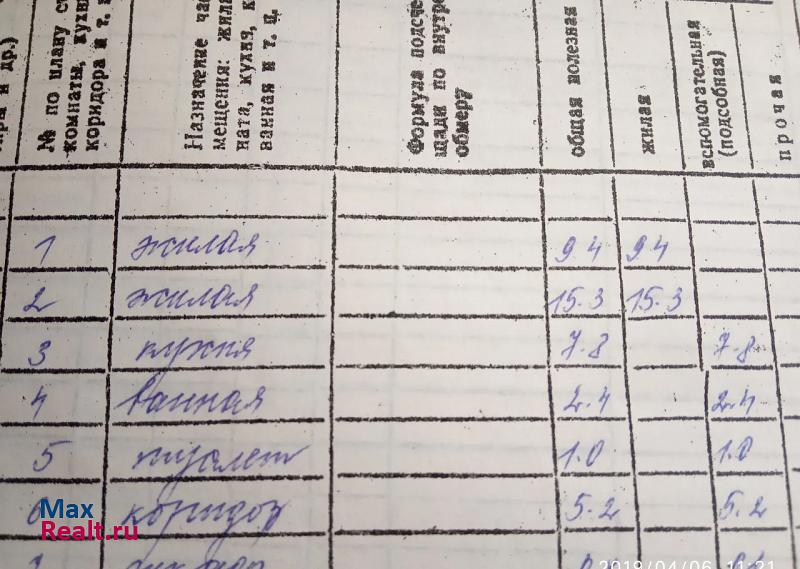 № по плану
комнаты,
коридора и т.
Назначение
мещения:
ната, кухня,
ванная и т. п.
Формула
щади по
обмеру
общая полезная
жилая
вспомогательная
(подсобная)
прочая
1 жилая 9.4 9.4
2 жилая 15.3 15.3
3 кухня 7.8 7.8
4 ванная 2.4 2.4
5 туалет 1.0 1.0
6 коридор 5.2 5.2
Max
Realt.ru
2018/04/06 11:21